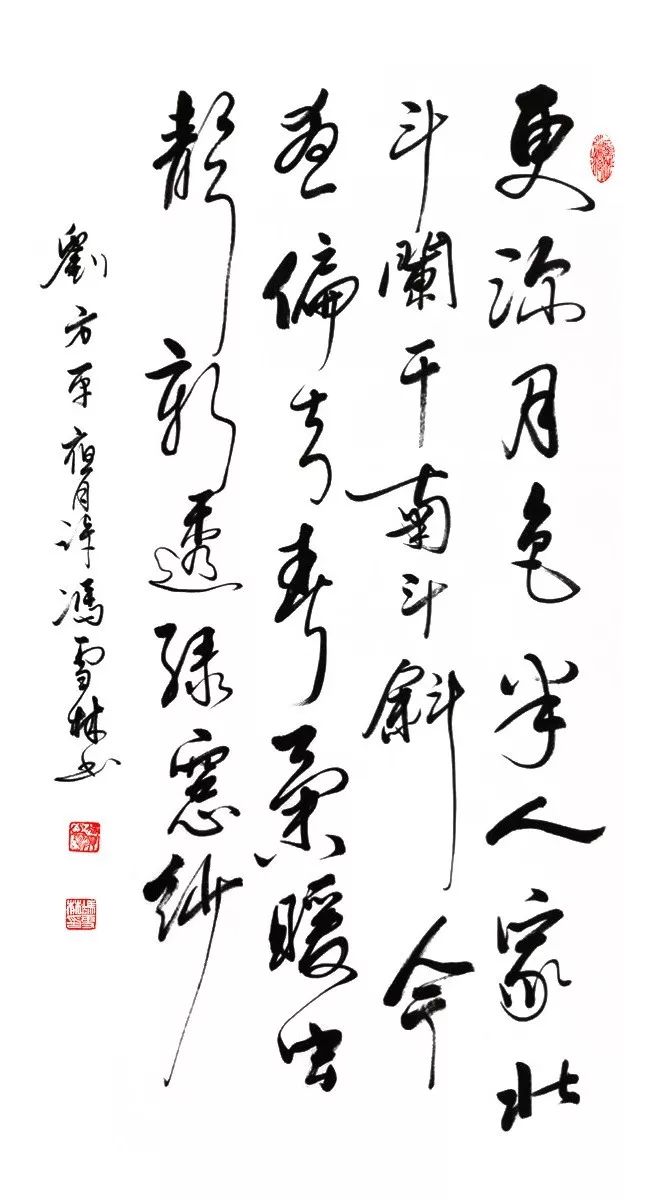 更深月色半人家北
斗闌干南斗斜今
夜偏知春氣暖虫
聲新透綠窓紗
劉方平夜月詩馮雪林书